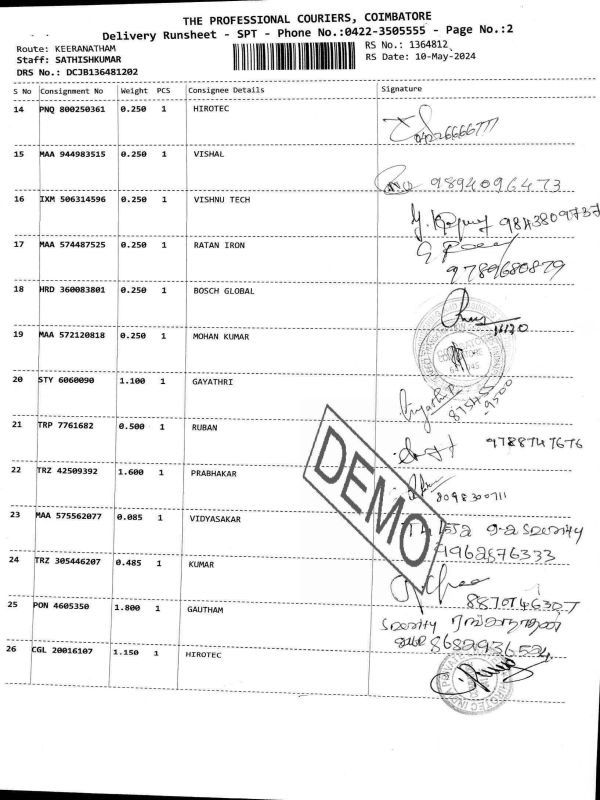 THE PROFESSIONAL COURIERS, COIMBATORE
Delivery Runsheet - SPT - Phone No.:0422-3505555 - Page No.:2
Route: KEERANATHAM
RS No.: 1364812
Staff: SATHISHKUMAR
RS Date: 10-May-2024
DRS No.: DCJB136481202
S No Consignment No Weight PCS Consignee Details Signature
14 PNQ 800250361 0.250 1 HIROTEC
15 MAA 944983515 0.250 1 VISHAL
9894096473
16 IXM 506314596 0.250 1 VISHNU TECH
9843809737
17 MAA 574487525 0.250 1 RATAN IRON
9789680879
18 HRD 360083801 0.250 1 BOSCH GLOBAL
19 MAA 572120818 0.250 1 MOHAN KUMAR
20 STY 6060090 1.100 1 GAYATHRI
87545
-9500
21 TRP 7761682 0.500 1 RUBAN
9788747676
22 TRZ 42509392 1.600 1 PRABHAKAR
8098300711
DEMO
23 MAA 575562077 0.085 1 VIDYASAKAR
9962576333
24 TRZ 305446207 0.485 1 KUMAR
25 PON 4605350 1.800 1 GAUTHAM
26 CGL 20016107 1.150 1 HIROTEC